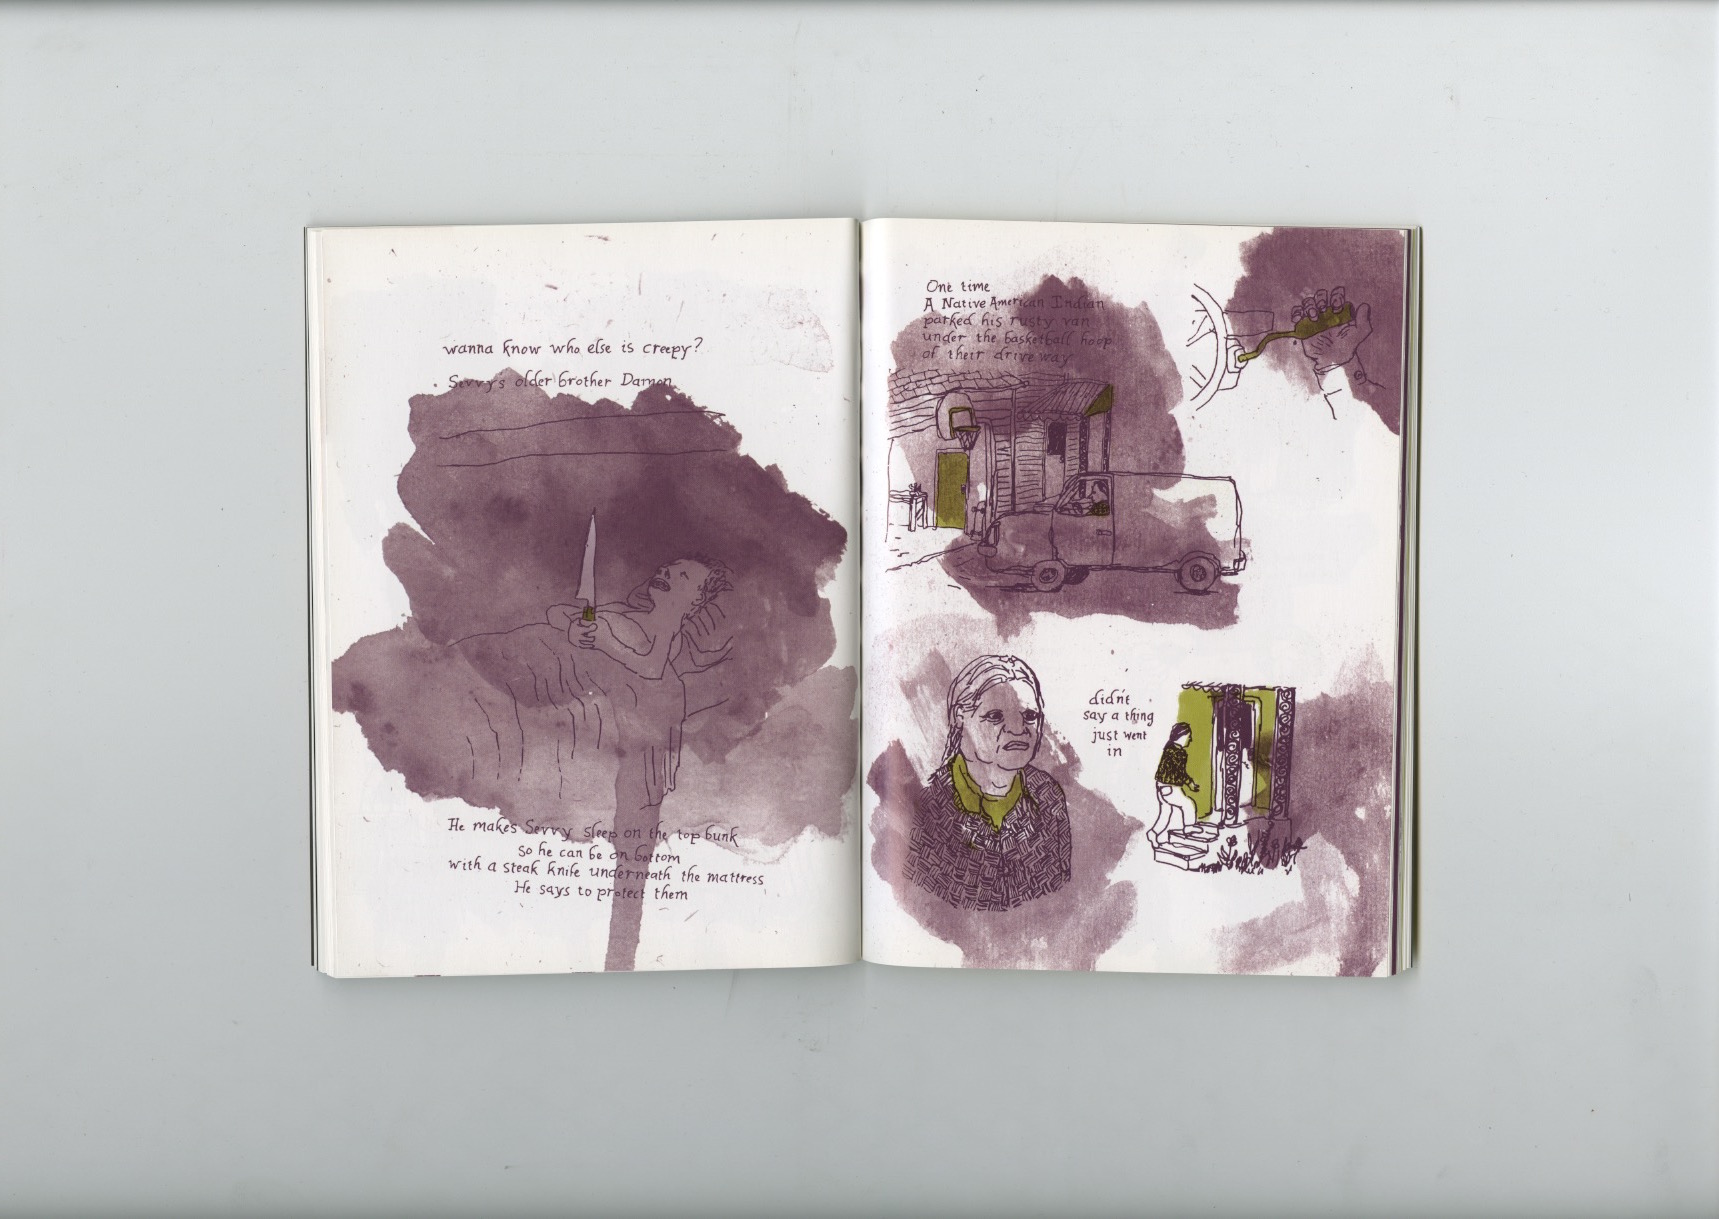 wanna know who else is creepy?
Sevvys older brother Damon
He makes Sevvy sleep on the top bunk
So he can be on bottom
with a steak knife underneath the mattress
He says to protect them
One time
A Native American Indian
parked his rusty van
under the basketball hoop
of their drive way
didn't
say a thing
just went
in